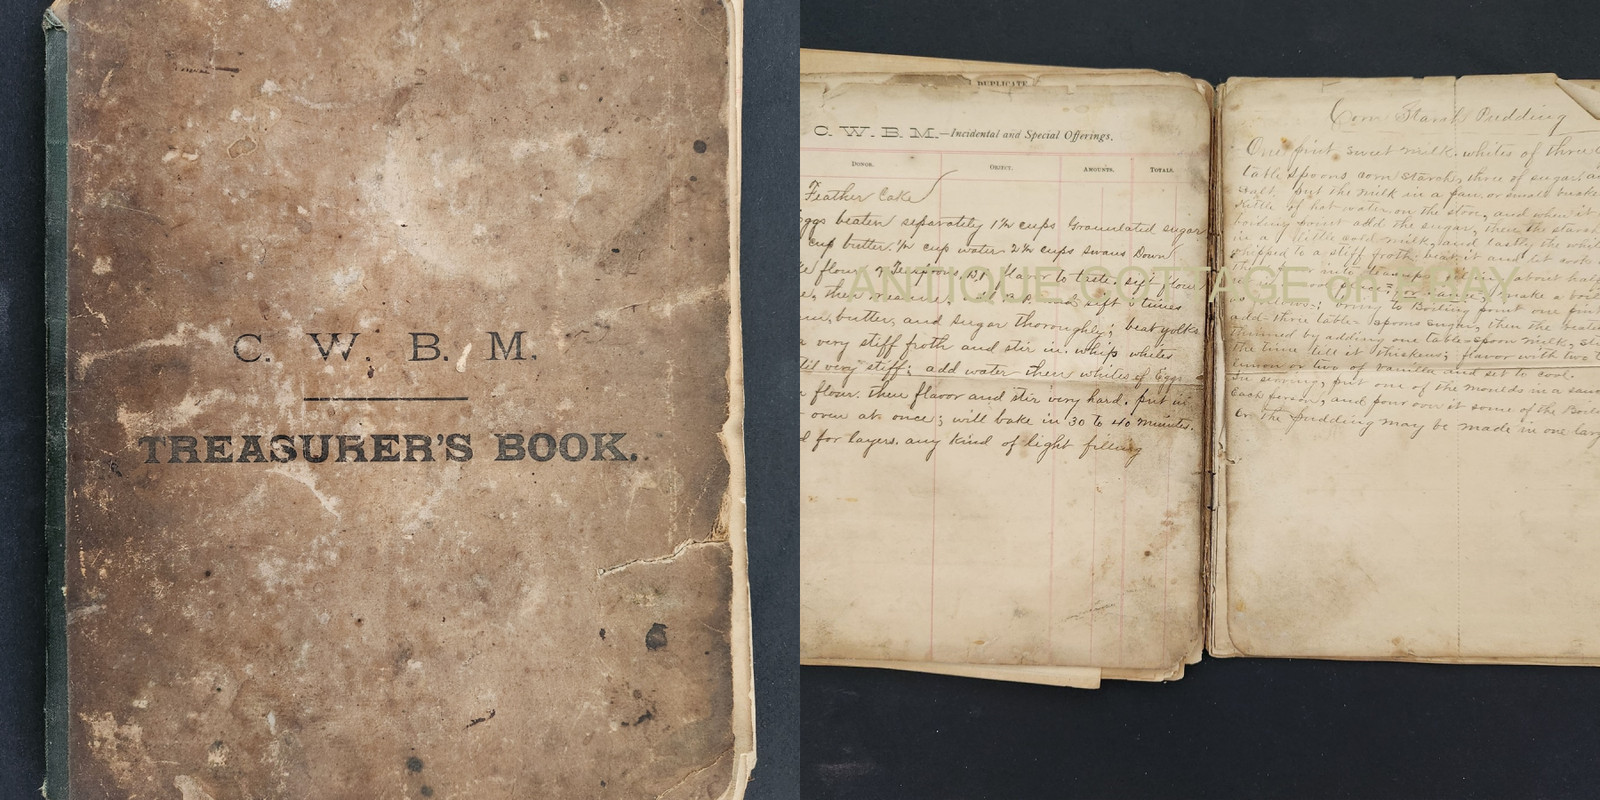 C. W. B. M.
TREASURER'S BOOK.
DUPLICATE
C. W. B. M.—Incidental and Special Offerings.
DONOR. OBJECT. AMOUNTS. TOTALS.
Feather Cake
ggs beaten separately 1½ cups Granulated sugar
cup butter. ½ cup water - 2½ cups Swans Down
flour to taste. sift flour
then measure, and sift times
butter, and sugar thoroughly; beat yolks
very stiff froth and stir in. whip whites
til very stiff; add water then whites of Eggs
flour. then flavor and stir very hard. put in
oven at once; will bake in 30 to 40 minutes.
d for layers. any kind of light filling
Corn Starch Pudding
One pint sweet milk. whites of three
table spoons corn starch, three of sugar, a
salt. Put the milk in a pan or small bucket
Kettle of hot water on the stove, and when it
boiling point add the sugar, then the starch
in a little cold milk, and lastly the whit
whipped to a stiff froth; beat it and let cook
make a boil
to Boiling point one pint
add three table-spoons sugar, then the beate
thinned by adding one table-spoon milk, sti
the time till it thickens; flavor with two t
lemon or two of vanilla and set to cool.
In serving, put one of the moulds in a sauc
Each person, and pour over it some of the Boile
Or the pudding may be made in one larg
ANTIQUE COTTAGE on EBAY